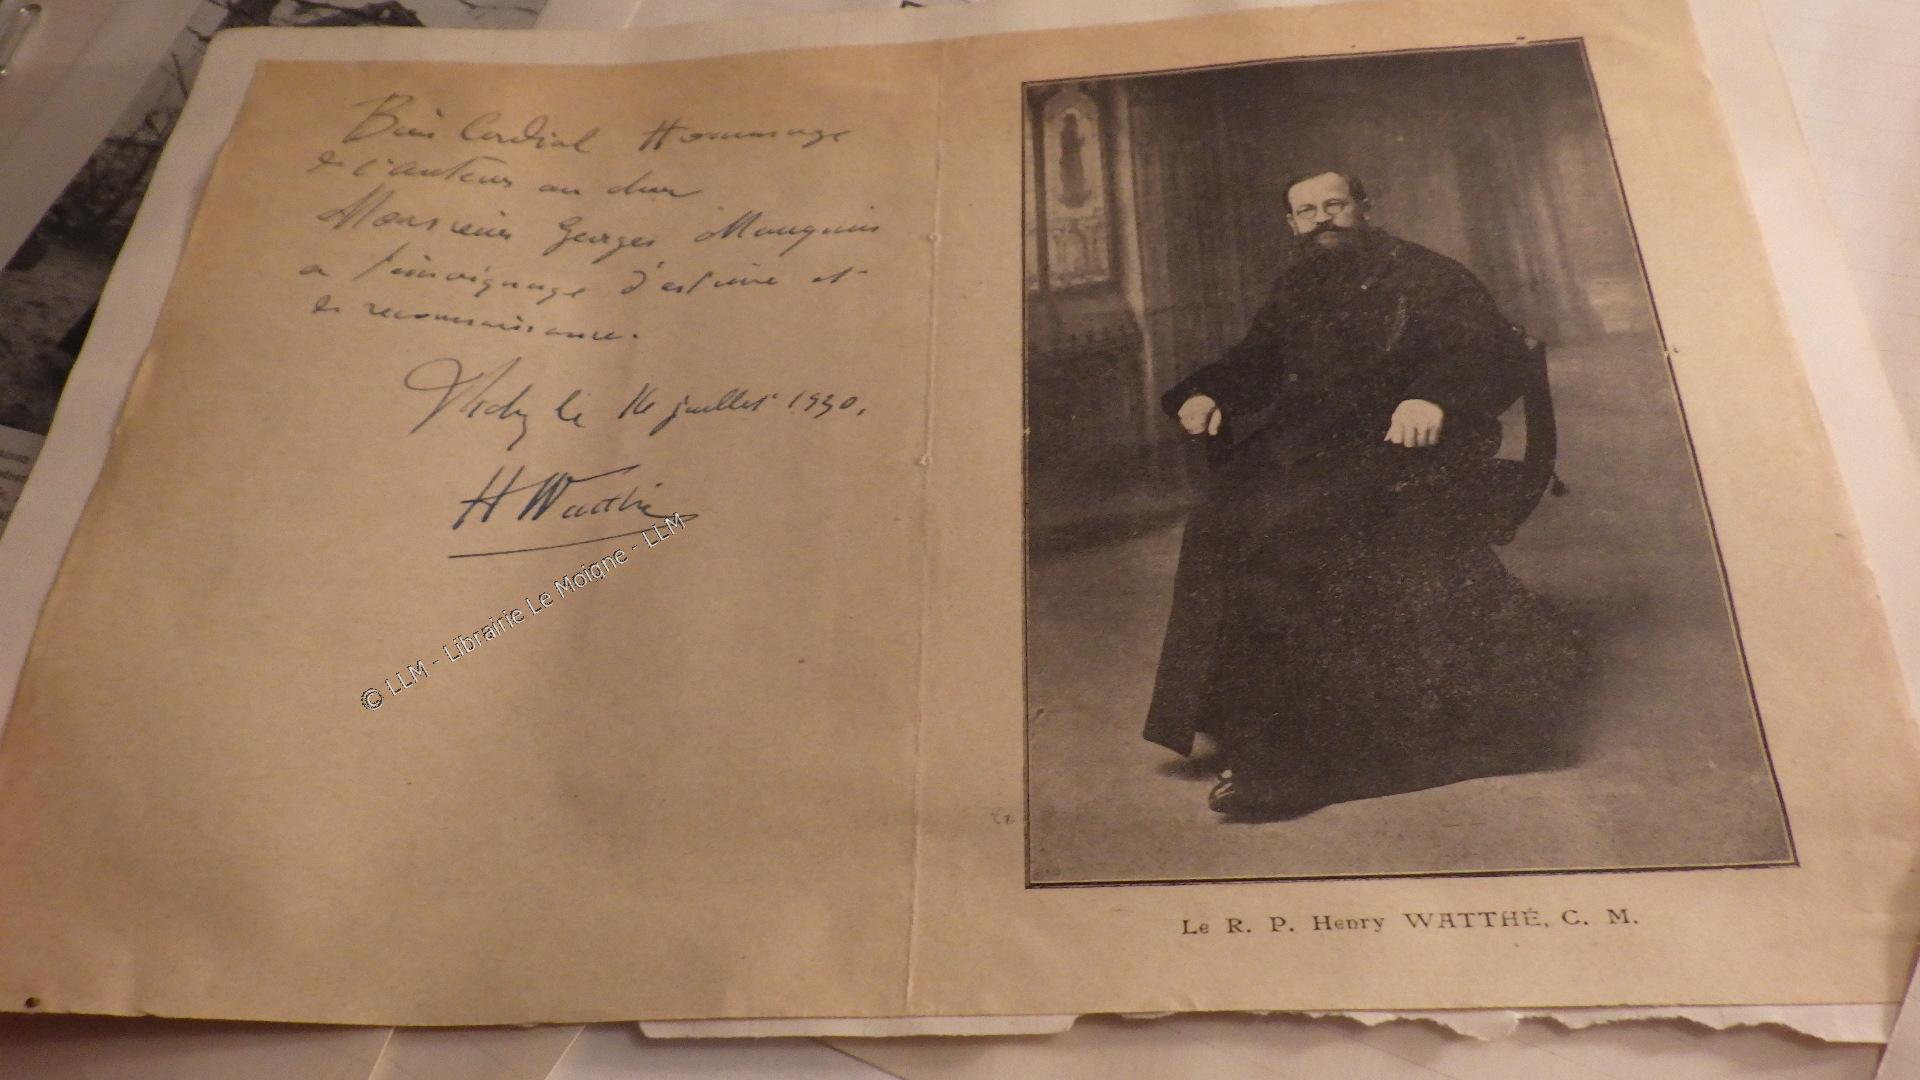 Bien Cordial Hommage
de l'auteur au cher
Monsieur Georges Mauguin
témoignage d'estime et
de reconnaissance.
Vichy le juillet 1930.
H Watthé
© LLM - Librairie Le Moigne - LLM
Le R. P. Henry WATTHÉ, C. M.